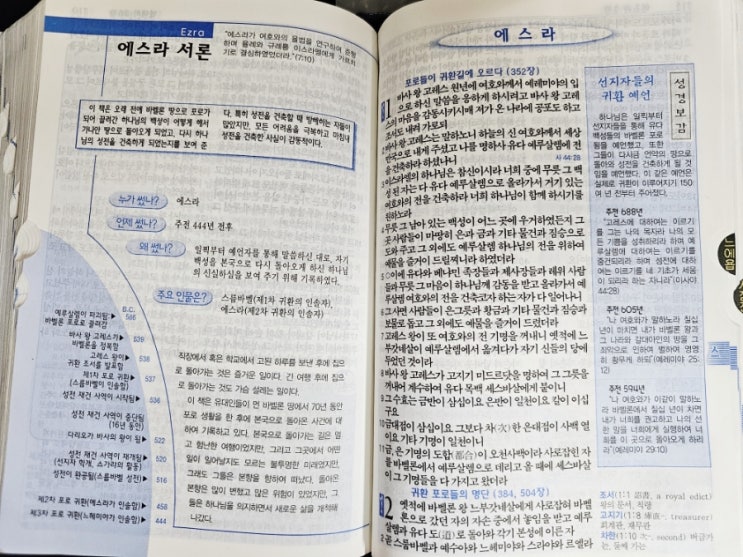 Ezra
에스라 서론
"에스라가 여호와의 율법을 연구하여 준행
하며 율례와 규례를 이스라엘에게 가르치
기로 결심하였었더라."(7:10)
이 책은 오래 전에 바벨론 땅으로 포로가
되어 끌려간 하나님의 백성이 어떻게 해서
가나안 땅으로 돌아오게 되었고, 다시 하나
님의 성전을 건축하게 되었는지를 보여 준
다. 특히 성전을 건축할 때 방해하는 자들이
많았지만, 모든 어려움을 극복하고 마침내
성전을 건축한 사실이 감동적이다.
누가 썼나? 에스라
언제 썼나? 주전 444년 전후
왜 썼나? 일찍부터 예언자를 통해 말씀하신 대로, 자기
백성을 본국으로 다시 돌아오게 하신 하나님
의 신실하심을 보여 주기 위해 기록하였다.
주요 인물은? 스룹바벨(제1차 귀환의 인솔자),
에스라(제2차 귀환의 인솔자)
B.C.
예루살렘이 파괴됨 586
바벨론 포로로 끌려감
바사 왕 고레스가 539
바벨론을 정복함
고레스 왕이 538
귀환 조서를 발표함
제1차 포로 귀환 537
(스룹바벨이 인솔함)
성전 재건 사역이 시작됨 536
성전 재건 사역이 중단됨 530
(16년 동안)
다리오가 바사의 왕이 됨 522
성전 재건 사역이 재개됨 520
(선지자 학개, 스가랴의 활동)
성전이 완공됨(스룹바벨 성전) 516
제2차 포로 귀환(에스라가 인솔함) 458
제3차 포로 귀환(느헤미야가 인솔함) 444
직장에서 혹은 학교에서 고된 하루를 보낸 후에 집으
로 돌아가는 것은 즐거운 일이다. 긴 여행 후에 집으
로 돌아가는 것도 가슴 설레는 일이다.
이 책은 유대인들이 먼 바벨론 땅에서 70년 동안
포로 생활을 한 후에 본국으로 돌아온 사건에 대
하여 기록하고 있다. 본국으로 돌아가는 길은 멀
고 험난한 여행이었지만, 그리고 그곳에서 어떤
일이 일어날지도 모르는 불투명한 미래였지만,
그래도 그들은 본향을 향하여 떠났다. 돌아온
본향은 많이 변했고 많은 위험이 있었지만, 그
들은 하나님을 의지하면서 새로운 삶을 개척해
나갔다.
에스라
포로들이 귀환길에 오르다 (352장)
1 바사 왕 고레스 원년에 여호와께서 예레미야의 입
으로 하신 말씀을 응하게 하시려고 바사 왕 고레
스의 마음을 감동시키시매 저가 온 나라에 공포도 하고
조서도 내려 가로되
2 바사 왕 고레스는 말하노니 하늘의 신 여호와께서 세상
만국으로 내게 주셨고 나를 명하사 유다 예루살렘에 전
을 건축하라 하셨나니 사 44:28
3 이스라엘의 하나님은 참신이시라 너희 중에 무릇 그 백
성 된 자는 다 유다 예루살렘으로 올라가서 거기 있는
여호와의 전을 건축하라 너희 하나님이 함께 하시기를
원하노라
4 무릇 그 남아 있는 백성이 어느 곳에 우거하였든지 그
곳 사람들이 마땅히 은과 금과 기타 물건과 짐승으로
도와 주고 그 외에도 예루살렘 하나님의 전을 위하여
예물을 즐거이 드릴찌니라 하였더라
5 ○이에 유다와 베냐민 족장들과 제사장들과 레위 사람
들과 무릇 그 마음이 하나님께 감동을 받고 올라가서 예
루살렘 여호와의 전을 건축코자 하는 자가 다 일어나니
6 그 사면 사람들이 은그릇과 황금과 기타 물건과 짐승과
보물로 돕고 그 외에도 예물을 즐거이 드렸더라
7 고레스 왕이 또 여호와의 전 기명을 꺼내니 옛적에 느
부갓네살이 예루살렘에서 옮겨다가 자기 신들의 당에
두었던 것이라
8 바사 왕 고레스가 고지기 미드르닷을 명하여 그 그릇을
꺼내어 계수하여 유다 목백 세스바살에게 붙이니
9 그 수효는 금반이 삼십이요 은반이 일천이요 칼이 이십
구요
10 금대접이 삼십이요 그보다 차(次)한 은대접이 사백 열
이요 기타 기명이 일천이니
11 금, 은 기명의 도합(都合)이 오천사백이라 사로잡힌 자
를 바벨론에서 예루살렘으로 데리고 올 때에 세스바살
이 그 기명들을 다 가지고 왔더라
귀환 포로들의 명단 (384, 504장)
2 옛적에 바벨론 왕 느부갓네살에게 사로잡혀 바벨
론으로 갔던 자의 자손 중에서 놓임을 받고 예루
살렘과 유다 도(道)로 돌아와 각기 본성에 이른 자
2 곧 스룹바벨과 예수아와 느헤미야와 스라야와 르엘라
성경보감
선지자들의
귀환 예언
하나님은 일찍부터
선지자들을 통해 유다
백성들의 바벨론 포로
됨을 예언했고, 또한
그들이 다시금 언약의 땅으로
돌아와 성전을 건축하게 될 것
임을 예언했다. 이 같은 예언은
실제로 귀환이 이루어지기 150
여 년 전부터 주어졌다.
주전 688년
"고레스에 대하여는 이르기
를 그는 나의 목자라 나의 모
든 기쁨을 성취하리라 하며 예
루살렘에 대하여는 이르기를
중건되리라 하며 성전에 대하
여는 이르기를 네 기초가 세움
이 되리라 하는 자니라"(이사야
44:28)
주전 605년
"나 여호와가 말하노라 칠십
년이 마치면 내가 바벨론 왕과
그 나라와 갈대아인의 땅을 그
죄악으로 인하여 벌하여 영영
히 황무케 하되"(예레미야 25:
12)
주전 594년
"나 여호와가 이같이 말하노
라 바벨론에서 칠십 년이 차면
내가 너희를 권고하고 나의 선
한 말을 너희에게 실행하여 너
희를 이 곳으로 돌아오게 하리
라"(예레미야 29:10)
조서(1:1 詔書, a royal edict)
왕의 문서, 칙령
고지기(1:8 庫-, treasurer)
회계관, 재무관
차한(1:10 次-, second) 버금가
는, 둘째 가는
느
에
욥